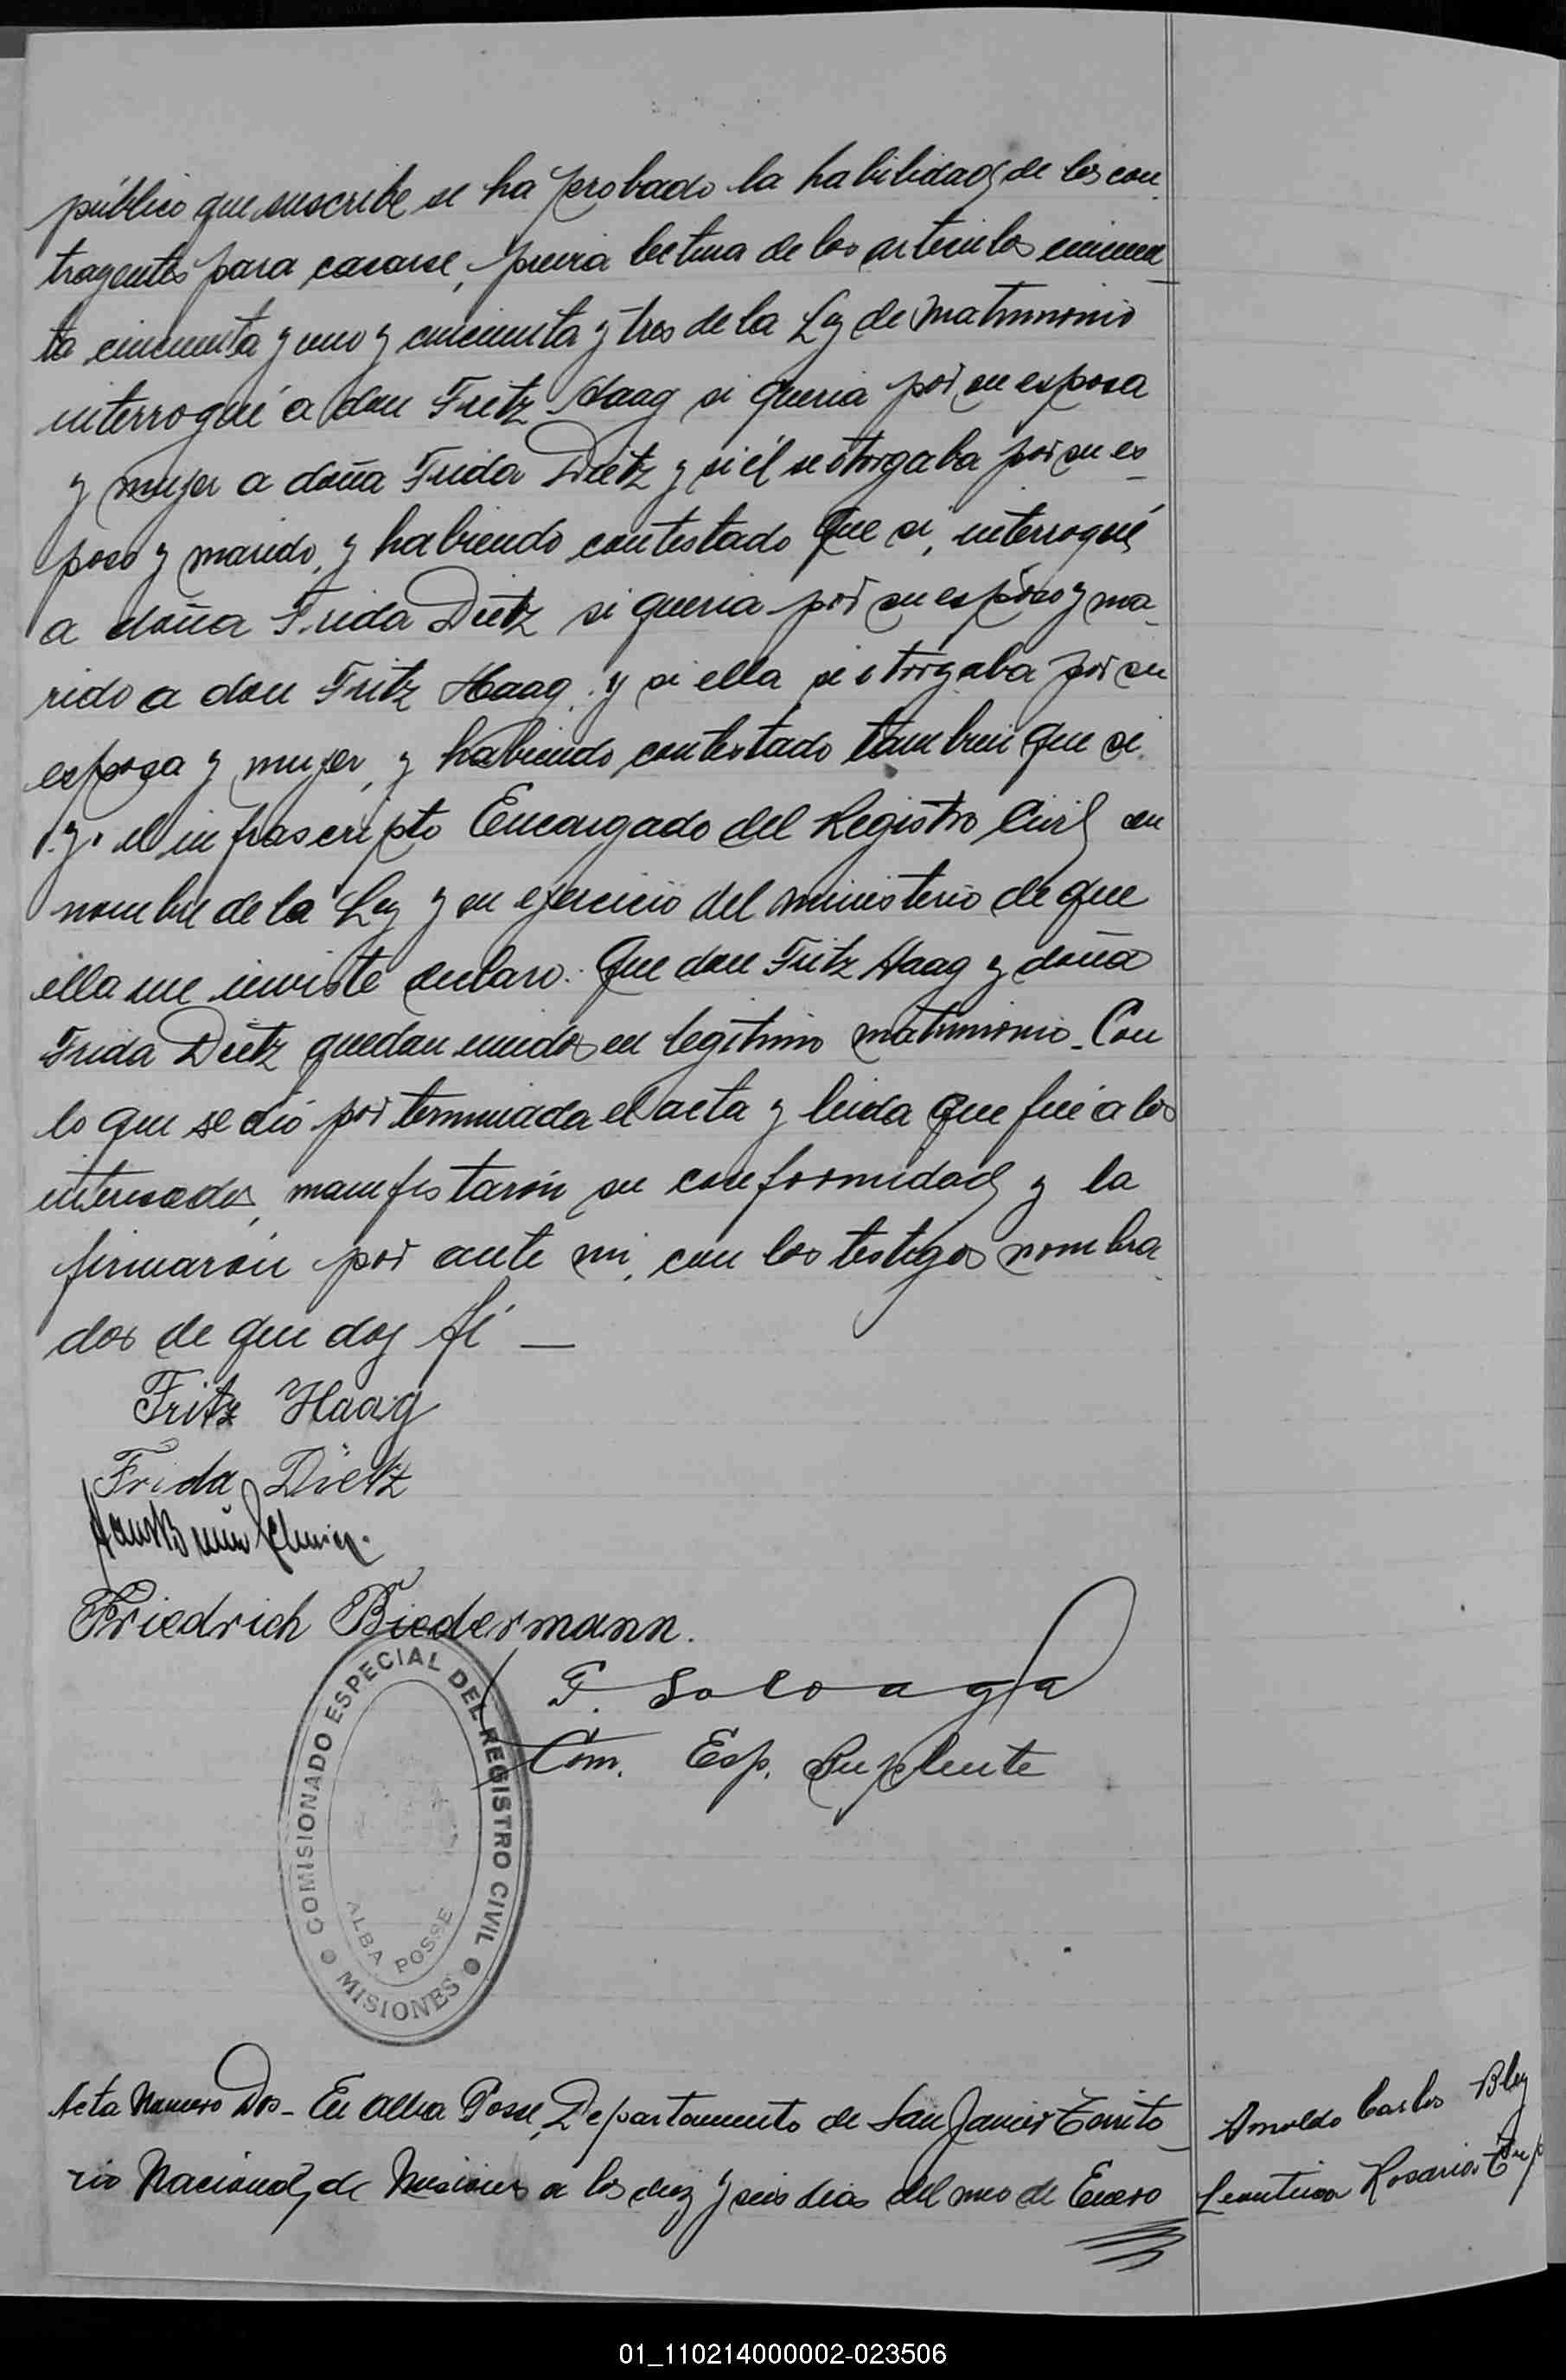 público que suscribe se ha probado la habilidad de los con-
trayentes para casarse, previa lectura de los articulos cincuen-
ta cincuenta y uno y cincuenta y tres de la Ley de Matrimonio
interrogué a don Fritz Haag si queria por su esposa
y mujer a doña Frida Dietz y si él se otorgaba por su es-
poso y marido, y habiendo contestado que si, interrogué
a doña Frida Dietz si queria por su esposo y ma-
rido a don Fritz Haag, y si ella se otorgaba por su
esposa y mujer, y habiendo contestado tambien que si.
yo el infrascripto Encargado del Registro Civil en
nombre de la Ley y en ejercicio del ministerio de que
ella me inviste declaro: Que don Fritz Haag y doña
Frida Dietz quedan unidos en legitimo matrimonio. Con
lo que se dió por terminada el acta y leida que fué a los
interesados, manifestarón su conformidad y la
firmarón por ante mi, con los testigos nombra-
dos de que doy fé —
Fritz Haag
Frida Dietz
Friedrich Biedermann.
F. Soloaga
Com. Esp. Suplente
COMISIONADO ESPECIAL DEL REGISTRO CIVIL
ALBA POSSE
MISIONES
Acta Numero Dos - En Alba Posse, Departamento de San Javier Territo-
rio Nacional de Misiones a los diez y seis dias del mes de Enero
Arnoldo Carlos Bley
Leontina Rosario
01_110214000002-023506